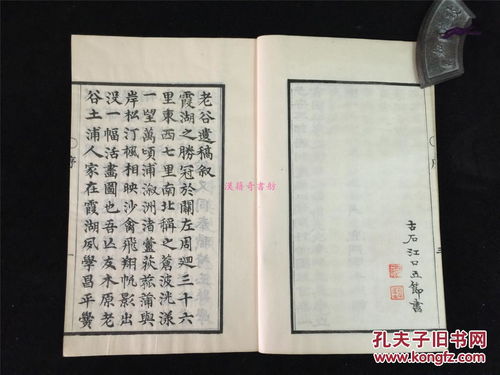 老谷遺稿叙
霞湖之勝冠於關左周廻三十六
里東西七里南北稱之蒼波洸漾
一望萬頃浦溆洲渚蘆荻菰蒲與
岸松汀楓相映沙禽飛翔帆影出
没一幅活畫圖也吾友木原老
谷土浦人家在霞湖夙學昌平黌
序
一
序
三
古石江口五節書
漢籍奇書舫
孔夫子旧书网
www.kongfz.com